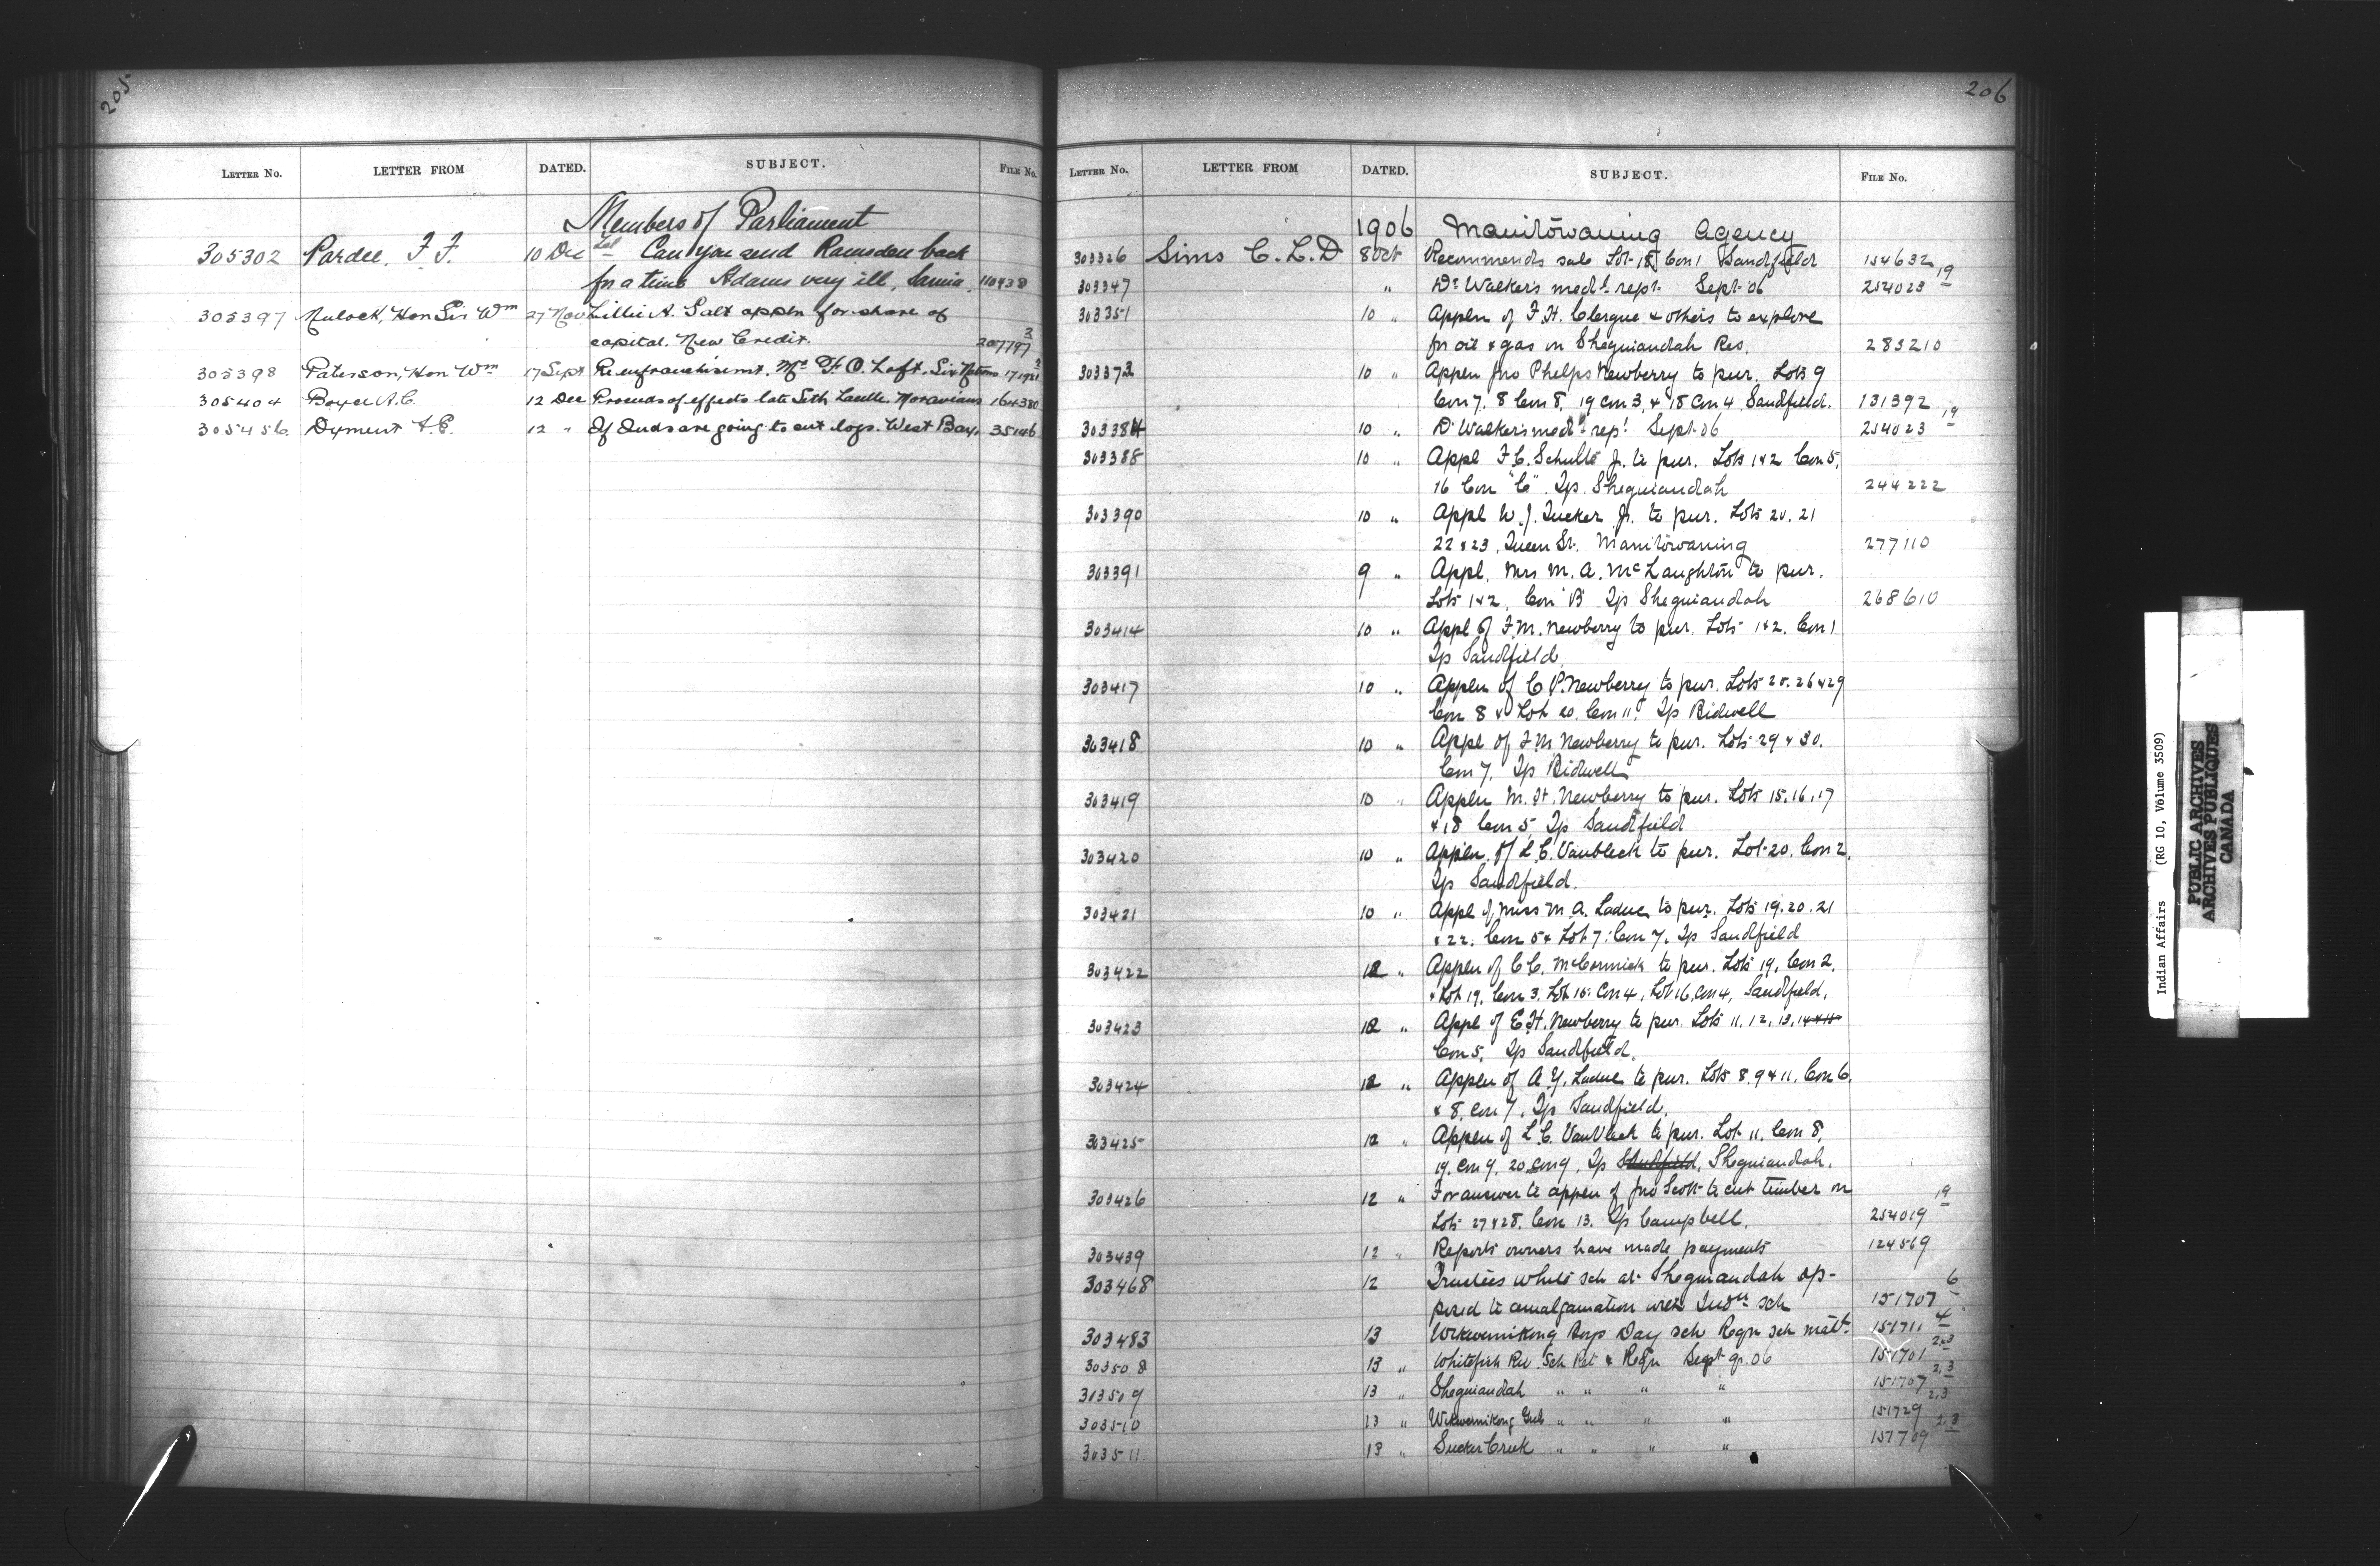 205
LETTER No. LETTER FROM DATED. SUBJECT. FILE No.
Members of Parliament
305302 Pardee, F. F. 10 Dec Tel Can you send Ramsden back
for a time Adams very ill, Sarnia. 110438
305397 Mulock, Hon Sir Wm 27 Nov Lillie A. Salt appln for share of
capital. New Credit. 207797 3
305398 Paterson, Hon Wm 17 Sept Re enfranchisemt. Mr F. O. Loft. Six Nations
305404 Boyce A. C. 12 Dec Proceeds of effects late Seth Lacelle. Moravians 164380
305456 Dyment A. E. 12 " If Inds are going to cut logs. West Bay. 35146
206
LETTER No. LETTER FROM DATED. SUBJECT. FILE No.
1906 Manitowaning Agency
303326 Sims C. L. D 8 Oct Recommends sale Lot 18, Con 1 Sandfield 154632
303347 " Dr Walker's medl rept. Sept 06 254023 19
303351 10 " Appln of F. H. Clergue & others to explore
for oil & gas on Sheguiandah Res. 283210
303373 10 " Appln Jno Phelps Newberry to pur. Lots 9
Con 7. 8 Con 8, 19 Con 3, & 18 Con 4 Sandfield. 131392
303384 10 " Dr Walker's medl rept Sept. 06 254023 19
303388 10 " Appl F. C. Schultz Jr. to pur. Lots 1 & 2 Con 5,
16 Con "C". Tp. Sheguiandah 244222
303390 10 " Appl W. J. Tucker Jr. to pur. Lots 20. 21
22 & 23, Queen St. Manitowaning 277110
303391 9 " Appl. Mrs M. A. McLaughton to pur.
Lots 1 & 2, Con B Tp Sheguiandah 268610
303414 10 " Appl of F. M. Newberry to pur. Lots 1 & 2. Con 1
Tp Sandfield
303417 10 " Appln of C. P. Newberry to pur. Lots 25. 26 & 29
Con 8 & Lot 20, Con 11, Tp Bidwell
303418 10 " Appl of F M Newberry to pur. Lots 29 & 30.
Con 7, Tp Bidwell
303419 10 " Appln M. H. Newberry to pur. Lots 15, 16, 17
& 18 Con 5, Tp Sandfield
303420 10 " Appln. of L. C. Vanbleck to pur. Lot 20, Con 2,
Tp Sandfield.
303421 10 " Appl of Miss M. A. Laduc to pur. Lots 19. 20. 21
& 22. Con 5 & Lot 7: Con 7, Tp Sandfield
303422 12 " Appln of C C. McCormick to pur. Lots 19, Con 2,
& Lot 19, Con 3, Lot 15: Con 4, Lot 16, Con 4, Sandfield.
303423 12 " Appl of E. H. Newberry to pur. Lots 11. 12, 13, 14
Con 5, Tp Sandfield.
303424 12 " Appln of A. Y. Laduc to pur. Lots 8. 9 & 11, Con 6,
& 8, Con 7, Tp Sandfield.
303425 12 " Appln of L C. VanVleck to pur. Lot 11, Con 8,
19, Con 9, 20 Con 9, Tp Sandfield, Sheguiandah.
303426 12 " For answer to appln of Jno Scott to cut timber on
Lots 27 & 28, Con 13. Tp Campbell. 254019 19
303439 12 " Reports owners have made payments 124569
303468 12 Trustees white sch at Sheguiandah op-
posed to amalgamation with Indn sch 151707 6
303483 13 Wikwemikong Boys Day sch Reqn sch matl. 151711 4
303508 13 " Whitefish Riv. Sch Ret & Reqn Sept qr. 06 151701 2 & 3
303509 13 " Sheguiandah " " " " 151707 2, 3
303510 13 " Wikwemikong Girls " " " " 151729 2, 3
303511 13 " Sucker Creek " " " " 151709 2, 3
Indian Affairs (RG 10, Volume 3509)
PUBLIC ARCHIVES
ARCHIVES PUBLIQUES
CANADA